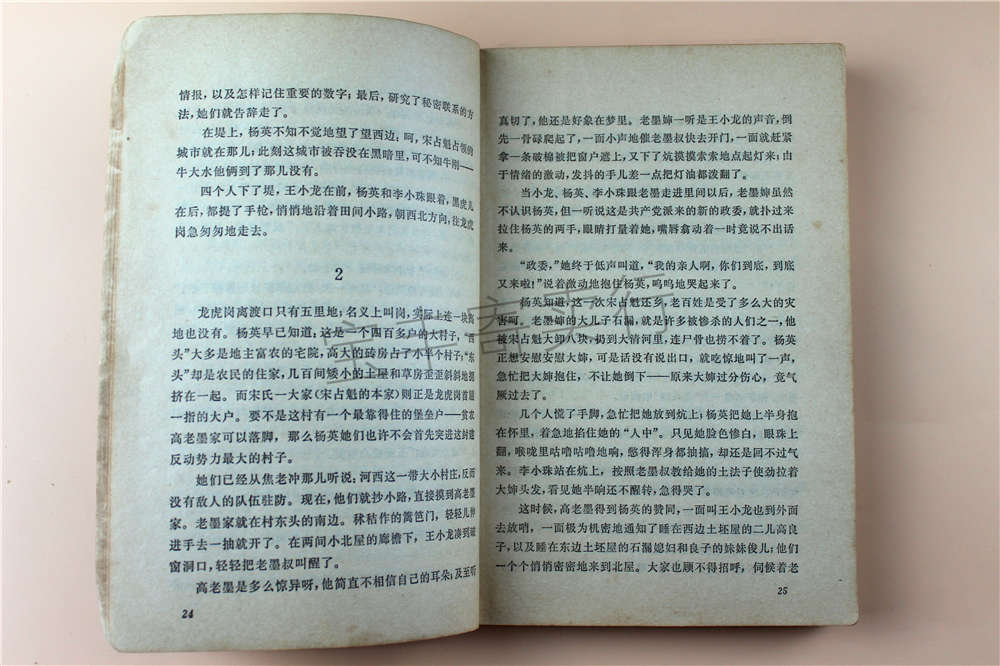 情报，以及怎样记住重要的数字；最后，研究了秘密联系的方
法，她们就告辞走了。
在堤上，杨英不知不觉地望了望西边；呵，宋占魁占领的
城市就在那儿；此刻这城市被吞没在黑暗里，可不知牛刚——
牛大水他俩到了那儿没有。
四个人下了堤，王小龙在前，杨英和李小珠跟着，黑虎儿
在后，都提了手枪，悄悄地沿着田间小路，朝西北方向，往龙虎
岗急匆匆地走去。
2
龙虎岗离渡口只有五里地；名义上叫岗，实际上连一块高
地也没有。杨英早已知道，这是一个四百多户的大村子，“西
头”大多是地主富农的宅院，高大的砖房占了小半个村子；“东
头”却是农民的住家，几百间矮小的土屋和草房歪歪斜斜地拥
挤在一起。而宋氏一大家（宋占魁的本家）则正是龙虎岗首屈
一指的大户。要不是这村有一个最靠得住的堡垒户——贫农
高老墨家可以落脚，那么杨英她们也许不会首先进这封建
反动势力最大的村子。
她们已经从焦老冲那儿听说，河西这一带大小村庄，反而
没有敌人的队伍驻防。现在，他们就抄小路，直接摸到高老墨
家。老墨家就在村东头的南边。秫秸作的篱笆门，轻轻儿伸
进手去一抽就开了。在两间小北屋的廊檐下，王小龙凑到破
窗洞口，轻轻把老墨叔叫醒了。
高老墨是多么惊异呀，他简直不相信自己的耳朵；及至听
24
真切了，他还是好象在梦里。老墨婶一听是王小龙的声音，倒
先一骨碌爬起了，一面小声地催老墨叔快去开门，一面就赶紧
拿一条破棉被把窗户遮上，又下了炕摸摸索索地点起灯来；由
于情绪的激动，发抖的手儿差一点把灯油都泼翻了。
当小龙、杨英、李小珠跟老墨走进里间以后，老墨婶虽然
不认识杨英，但一听说这是共产党派来的新的政委，就扑过来
拉住杨英的两手，眼睛打量着她，嘴唇翕动着一时竟说不出话
来。
“政委，”她终于低声叫道，“我的亲人啊，你们到底，到底
又来啦！”说着激动地抱住杨英，呜呜地哭起来了。
杨英知道，这一次宋占魁还乡，老百姓是受了多么大的灾
害呵。老墨婶的大儿子石漏，就是许多被惨杀的人们之一，他
被宋占魁大卸八块，扔到大清河里，连尸骨也捞不着了。杨英
正想安慰安慰大婶，可是话没有说出口，就吃惊地叫了一声，
急忙把大婶抱住，不让她倒下——原来大婶过分伤心，竟气
厥过去了。
几个人慌了手脚，急忙把她放到炕上；杨英把她上半身抱
在怀里，着急地掐住她的“人中”。只见她脸色惨白，眼珠上
翻，喉咙里咕噜咕噜地响，憋得浑身都抽搐，却还是回不过气
来。李小珠站在炕上，按照老墨叔教给她的土法子使劲拉着
大婶头发，看见她半响还不醒转，急得哭了。
这时候，高老墨得到杨英的赞同，一面叫王小龙也到外面
去放哨，一面极为机密地通知了睡在西边土坯屋的二儿高良
子，以及睡在东边土坯屋的石漏媳妇和良子的妹妹俊儿；他们
一个个悄悄密密地来到北屋。大家也顾不得招呼，伺候着老
25